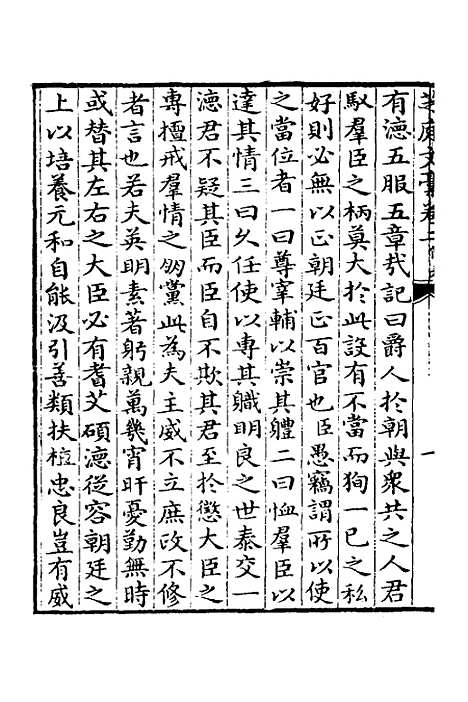 芝庭文稾卷二
一
有徳五服五章㢤記曰爵人於朝與衆共之人君
馭羣臣之柄莫大於此設有不當而狥一已之私
好則必無以正朝廷正百官也臣愚竊謂所以使
之當位者一曰尊宰輔以崇其軆二曰恤羣臣以
達其情三曰久任使以専其職明良之世泰交一
徳君不疑其臣而臣自不欺其君至於懲大臣之
専擅戒羣情之朋黨此為夫主威不立庶政不修
者言也若夫英明素著躬親萬幾宵旰憂勤無時
或替其左右之大臣必有耆艾碩徳從容朝廷之
上以培養元和自能汲引善類扶植忠良豈有威